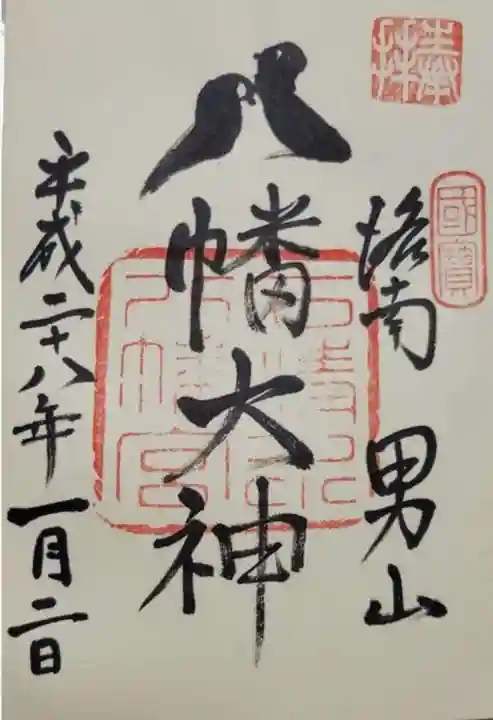 奉拝
國寳
洛南 男山
八幡大神
石清水八幡宮
平成二十八年一月二日